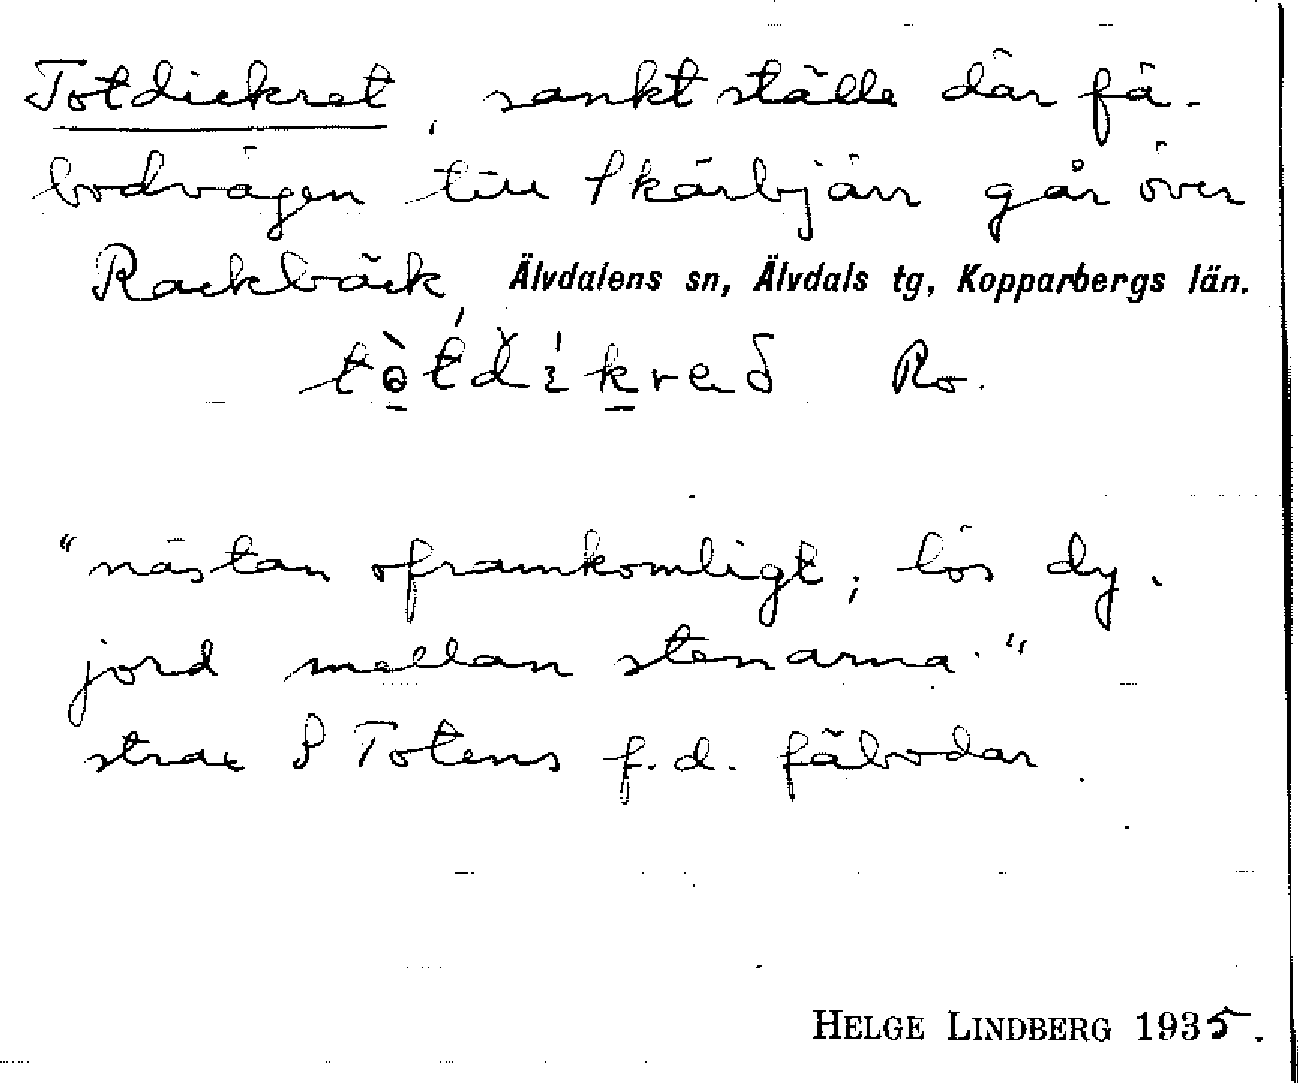 Totdickret, sankt ställe där fä-
bodvägen till Skärbjärr går över
Rackbäck, Älvdalens sn, Älvdals tg, Kopparbergs län.
Ro.
"nästan oframkomligt, lös dy-
jord mellan stenarna."
strax S Totens f.d. fäbodar
HELGE LINDBERG 1935.